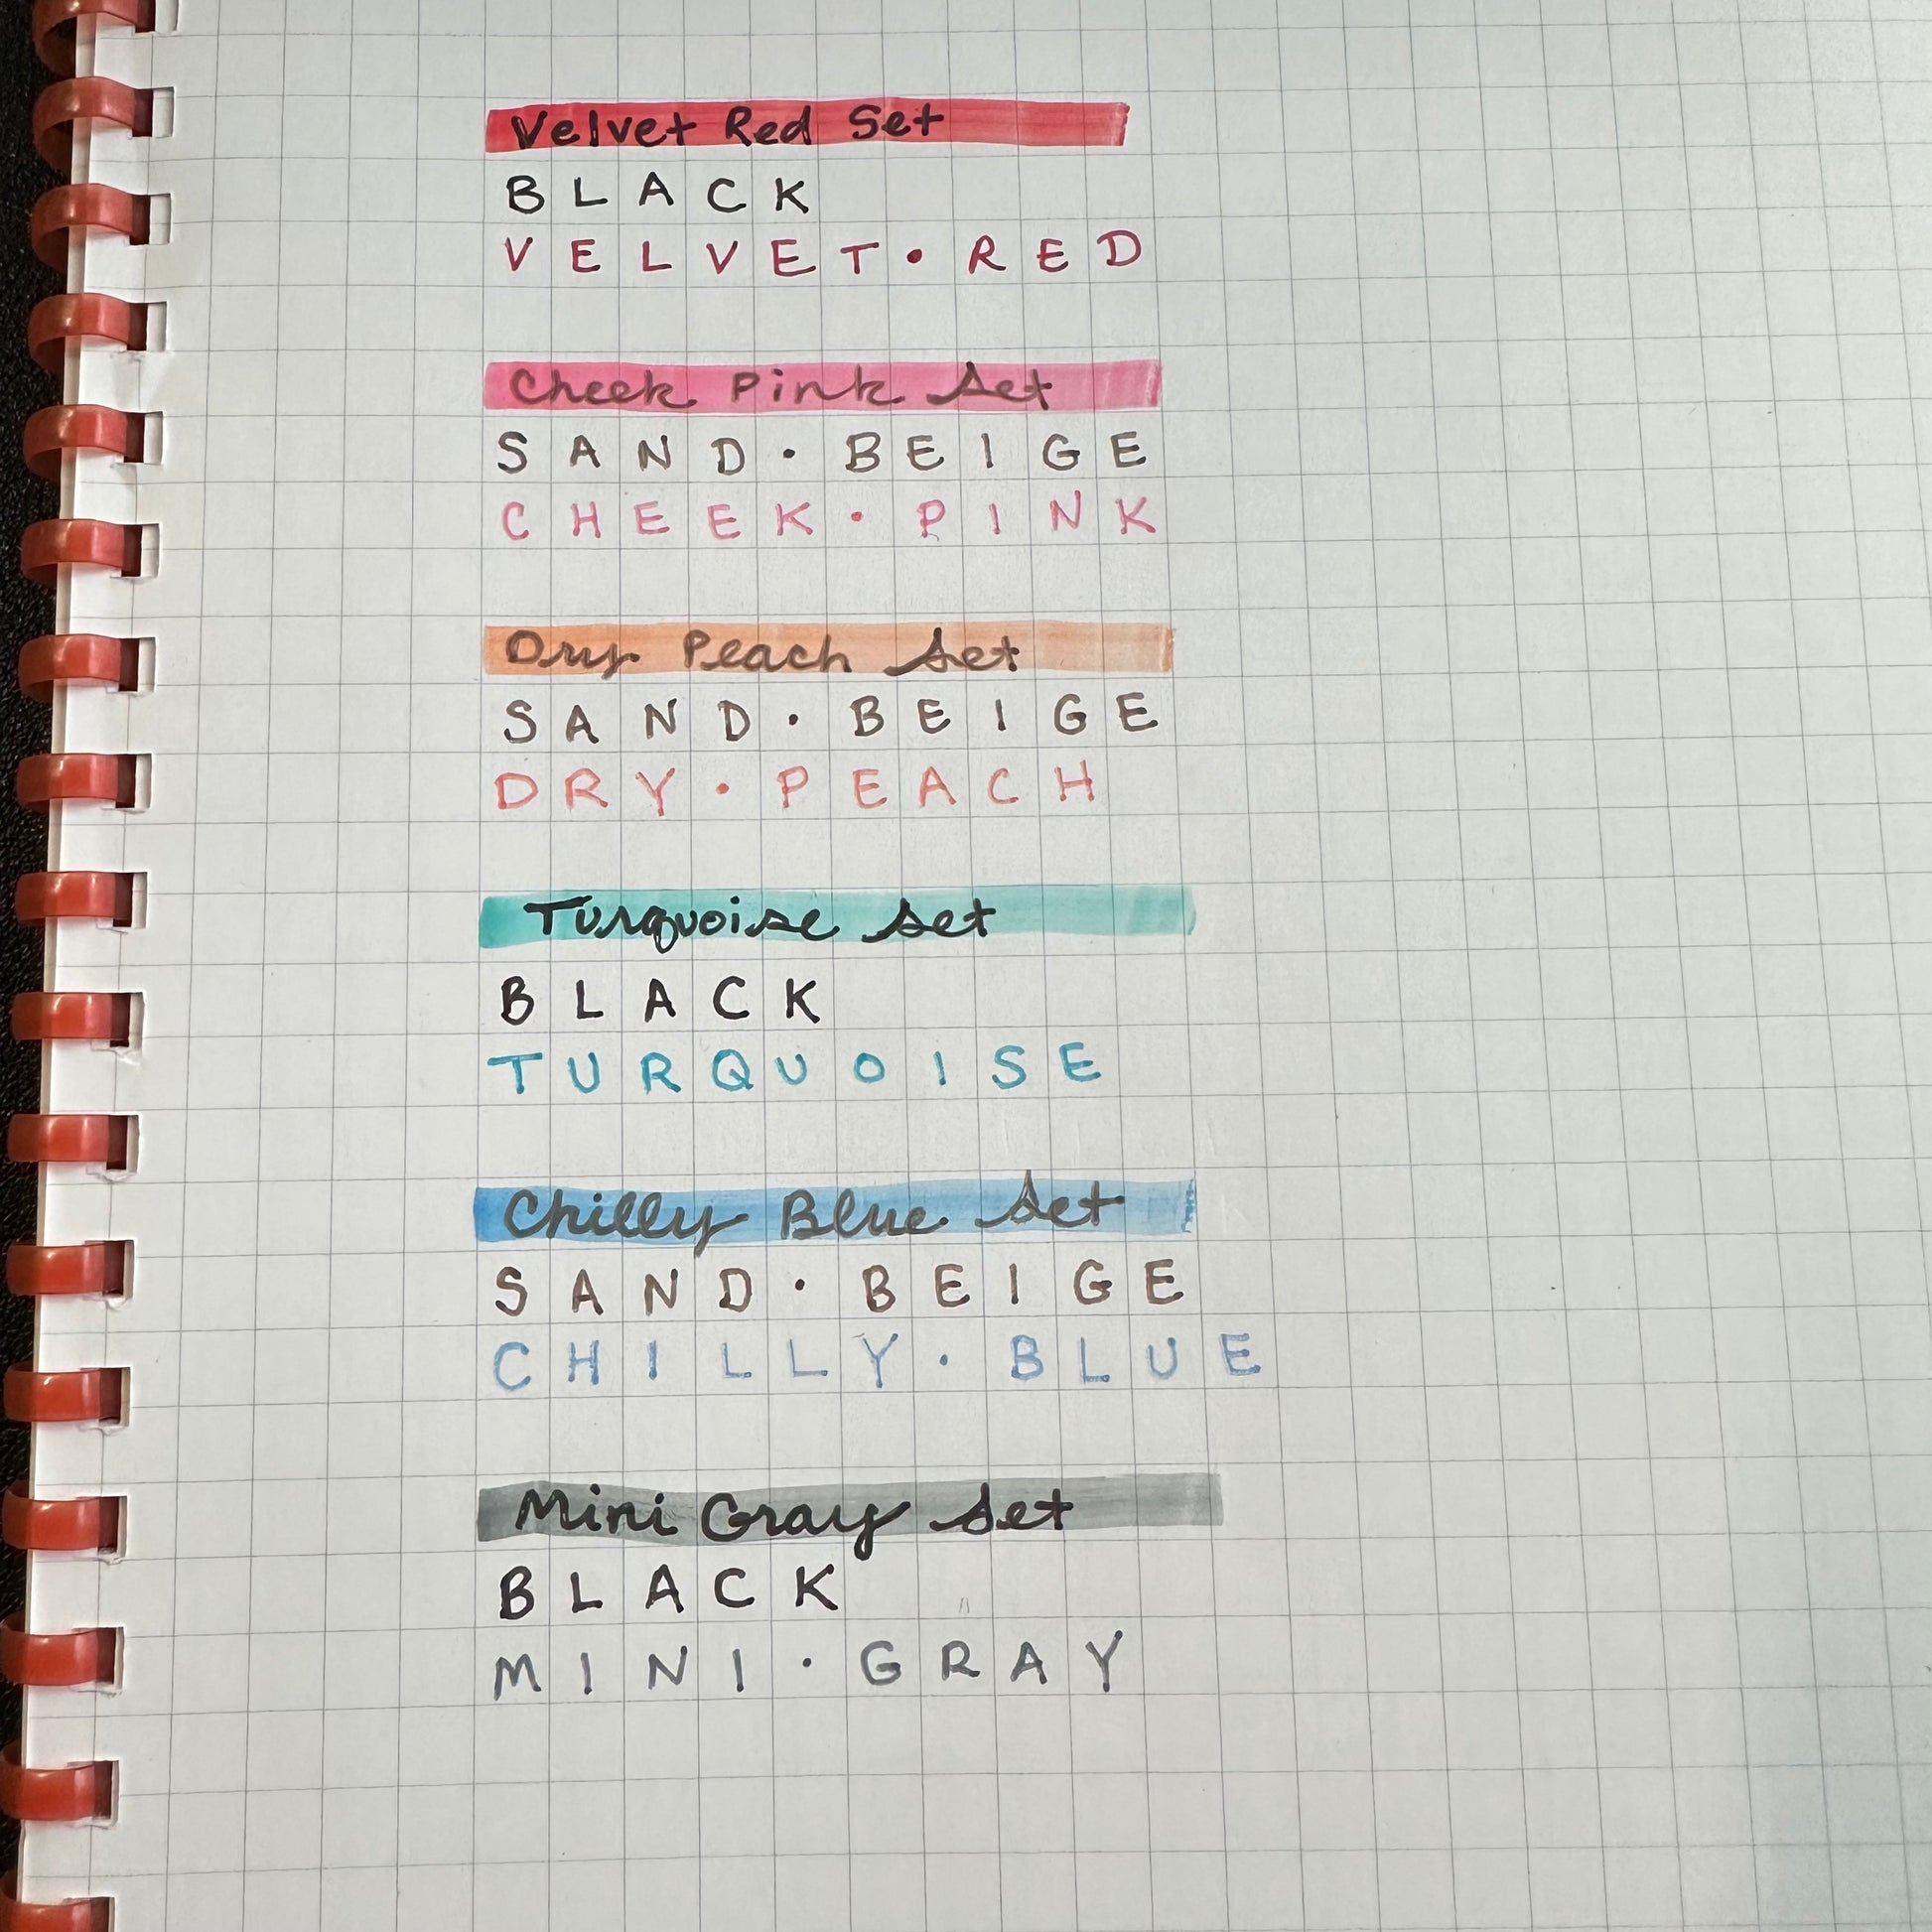 Velvet Red Set
BLACK
VELVET·RED
Cheek Pink Set
SAND·BEIGE
CHEEK·PINK
Dry Peach Set
SAND·BEIGE
DRY·PEACH
Turquoise Set
BLACK
TURQUOISE
Chilly Blue Set
SAND·BEIGE
CHILLY·BLUE
Mini Gray Set
BLACK
MINI·GRAY